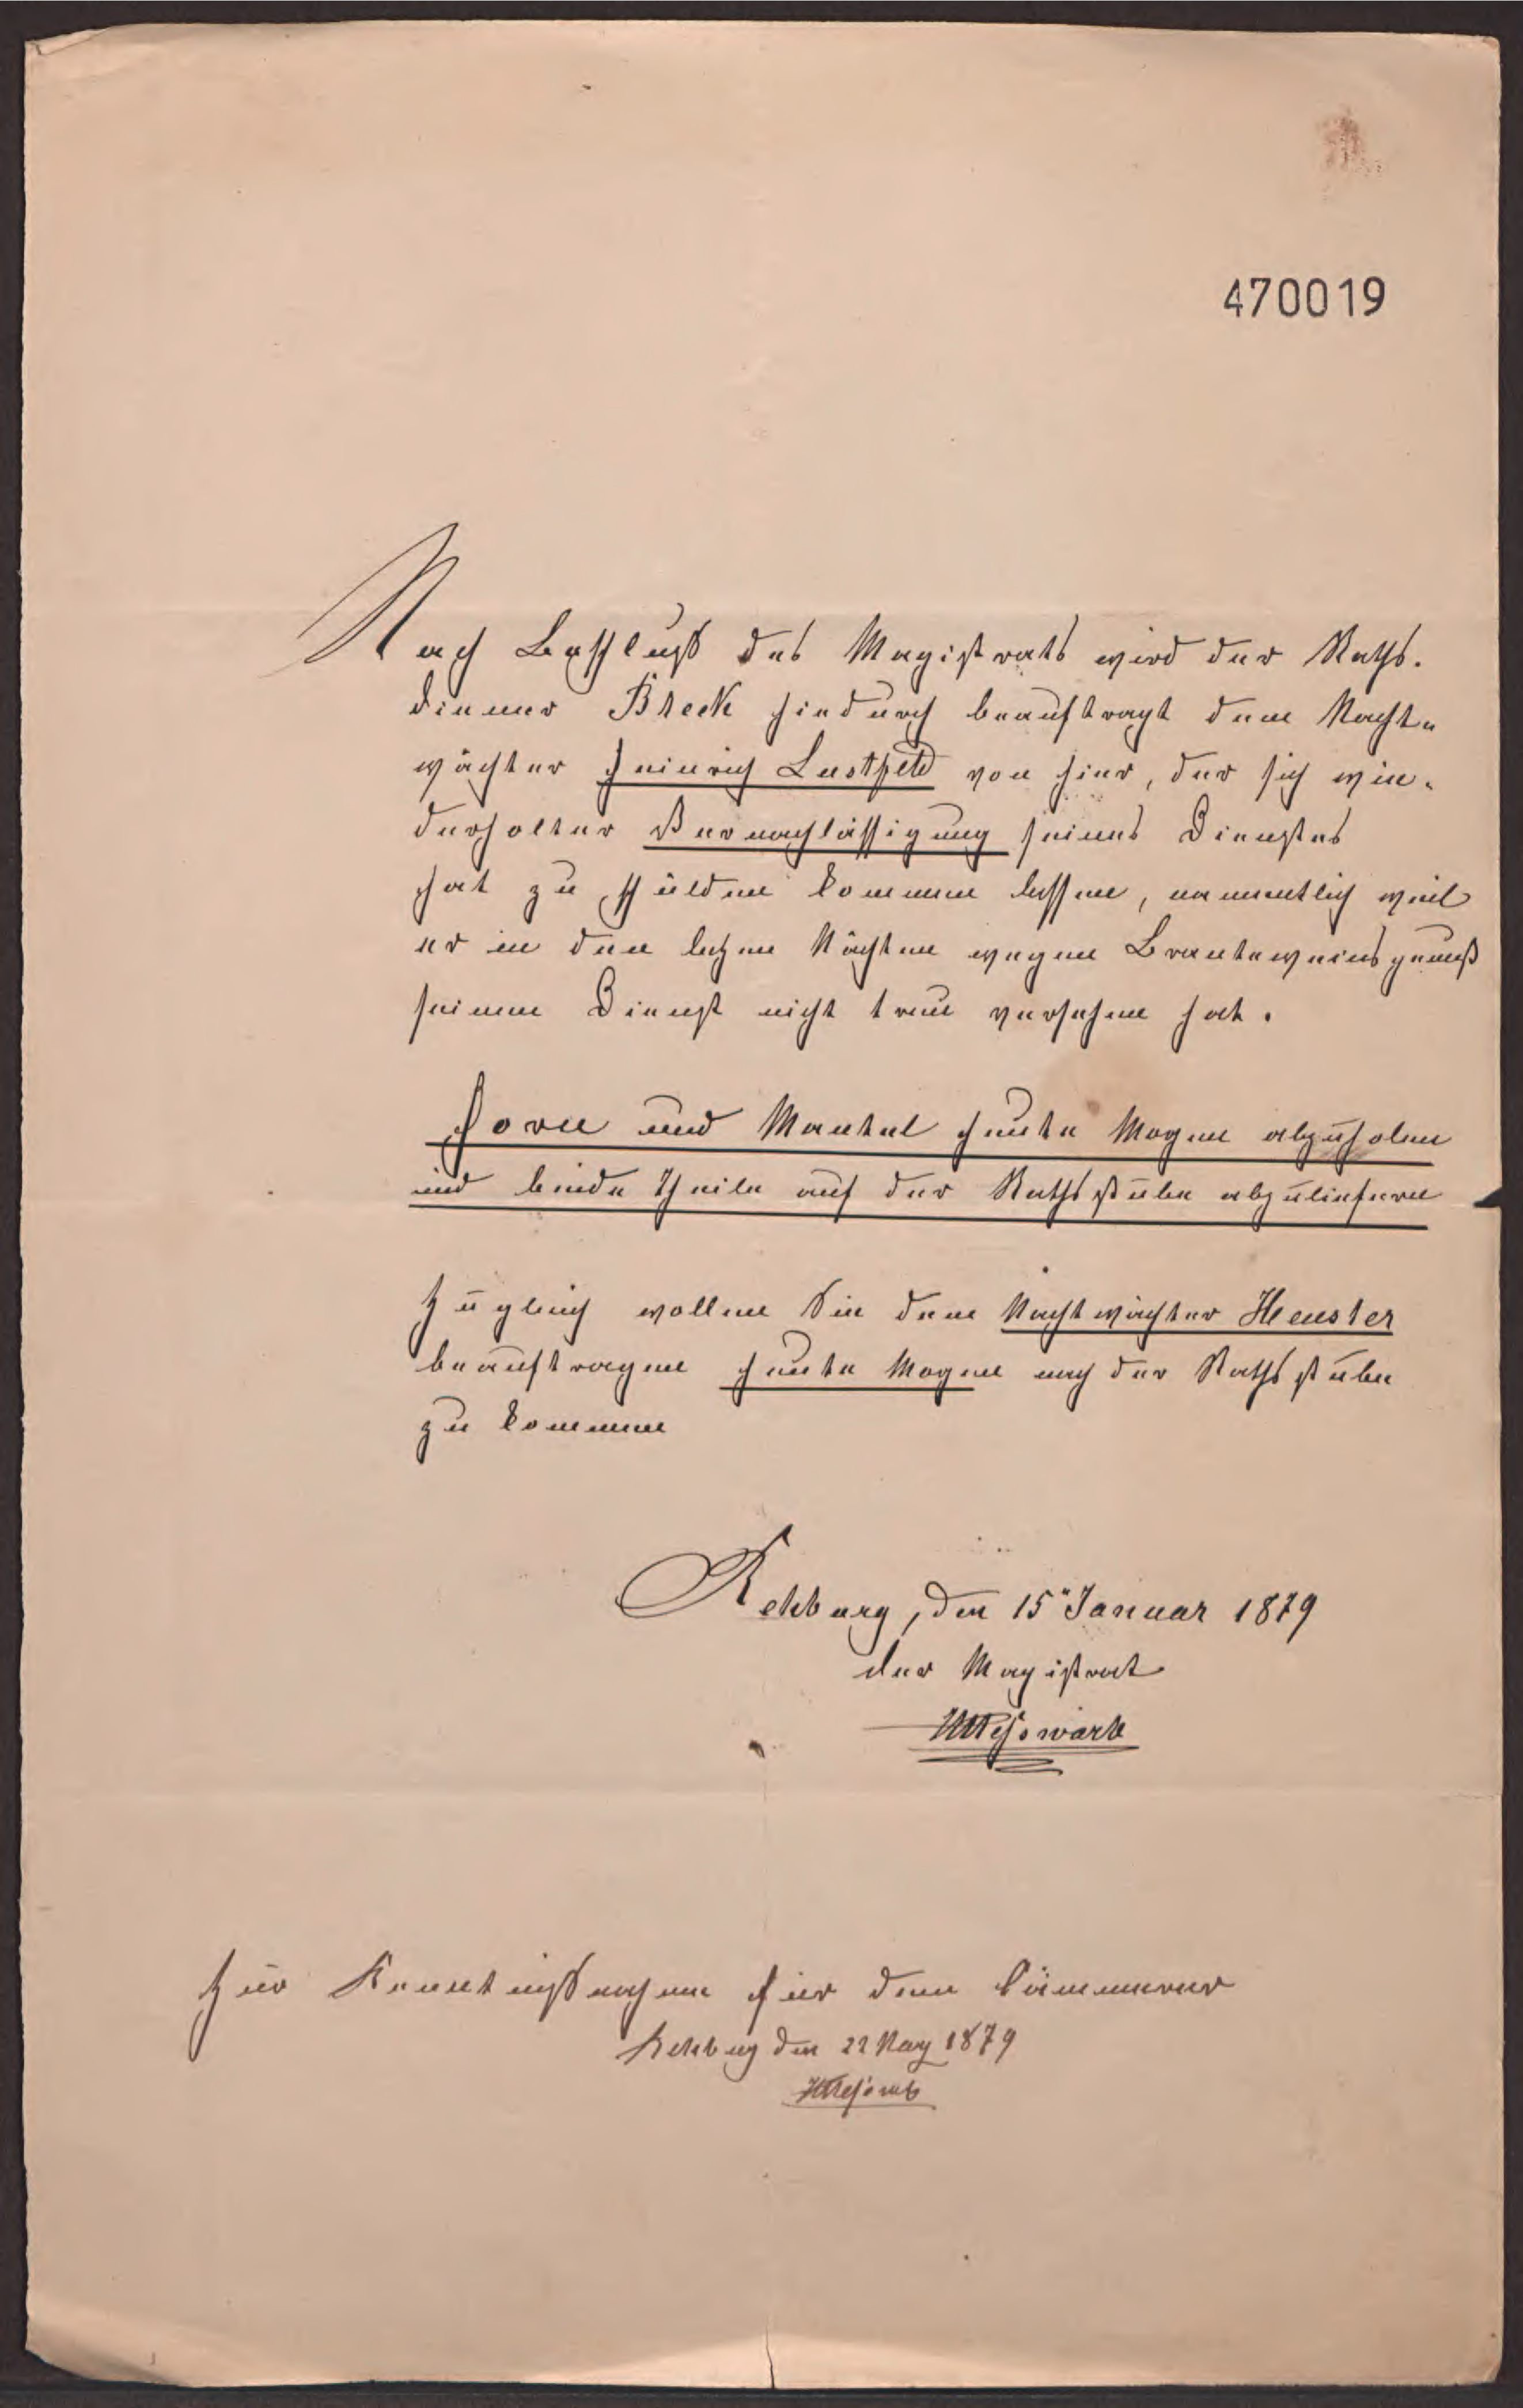 470019
Nach Beschluß des Magistrats wird der Raths-
diener Breck hierdurch beauftragt dem Nacht-
wächter Heinrich Lustfeld von hier, der sich wie-
derholter Vernachlässigung seines Dienstes
hat zu schulden kommen lassen, namentlich weil
er in den letzen Nächten wegen Branteweinsgenuß
seinen Dienst nicht treu versehen hat.
Horn und Mantel heute Morgen abzuholen
und beide Theile auf der Rathsstube abzuliefern
Zugleich wollen Sie dem Nachtwächter Heuster
beauftragen heute Morgen nach der Rathsstube
zu kommen
Rehburg, den 15ⁿ Januar 1879
der Magistrat
Meßwarb
Zur Kenntnißnahme für den Cämmerer
Rehburg den 22 May 1879